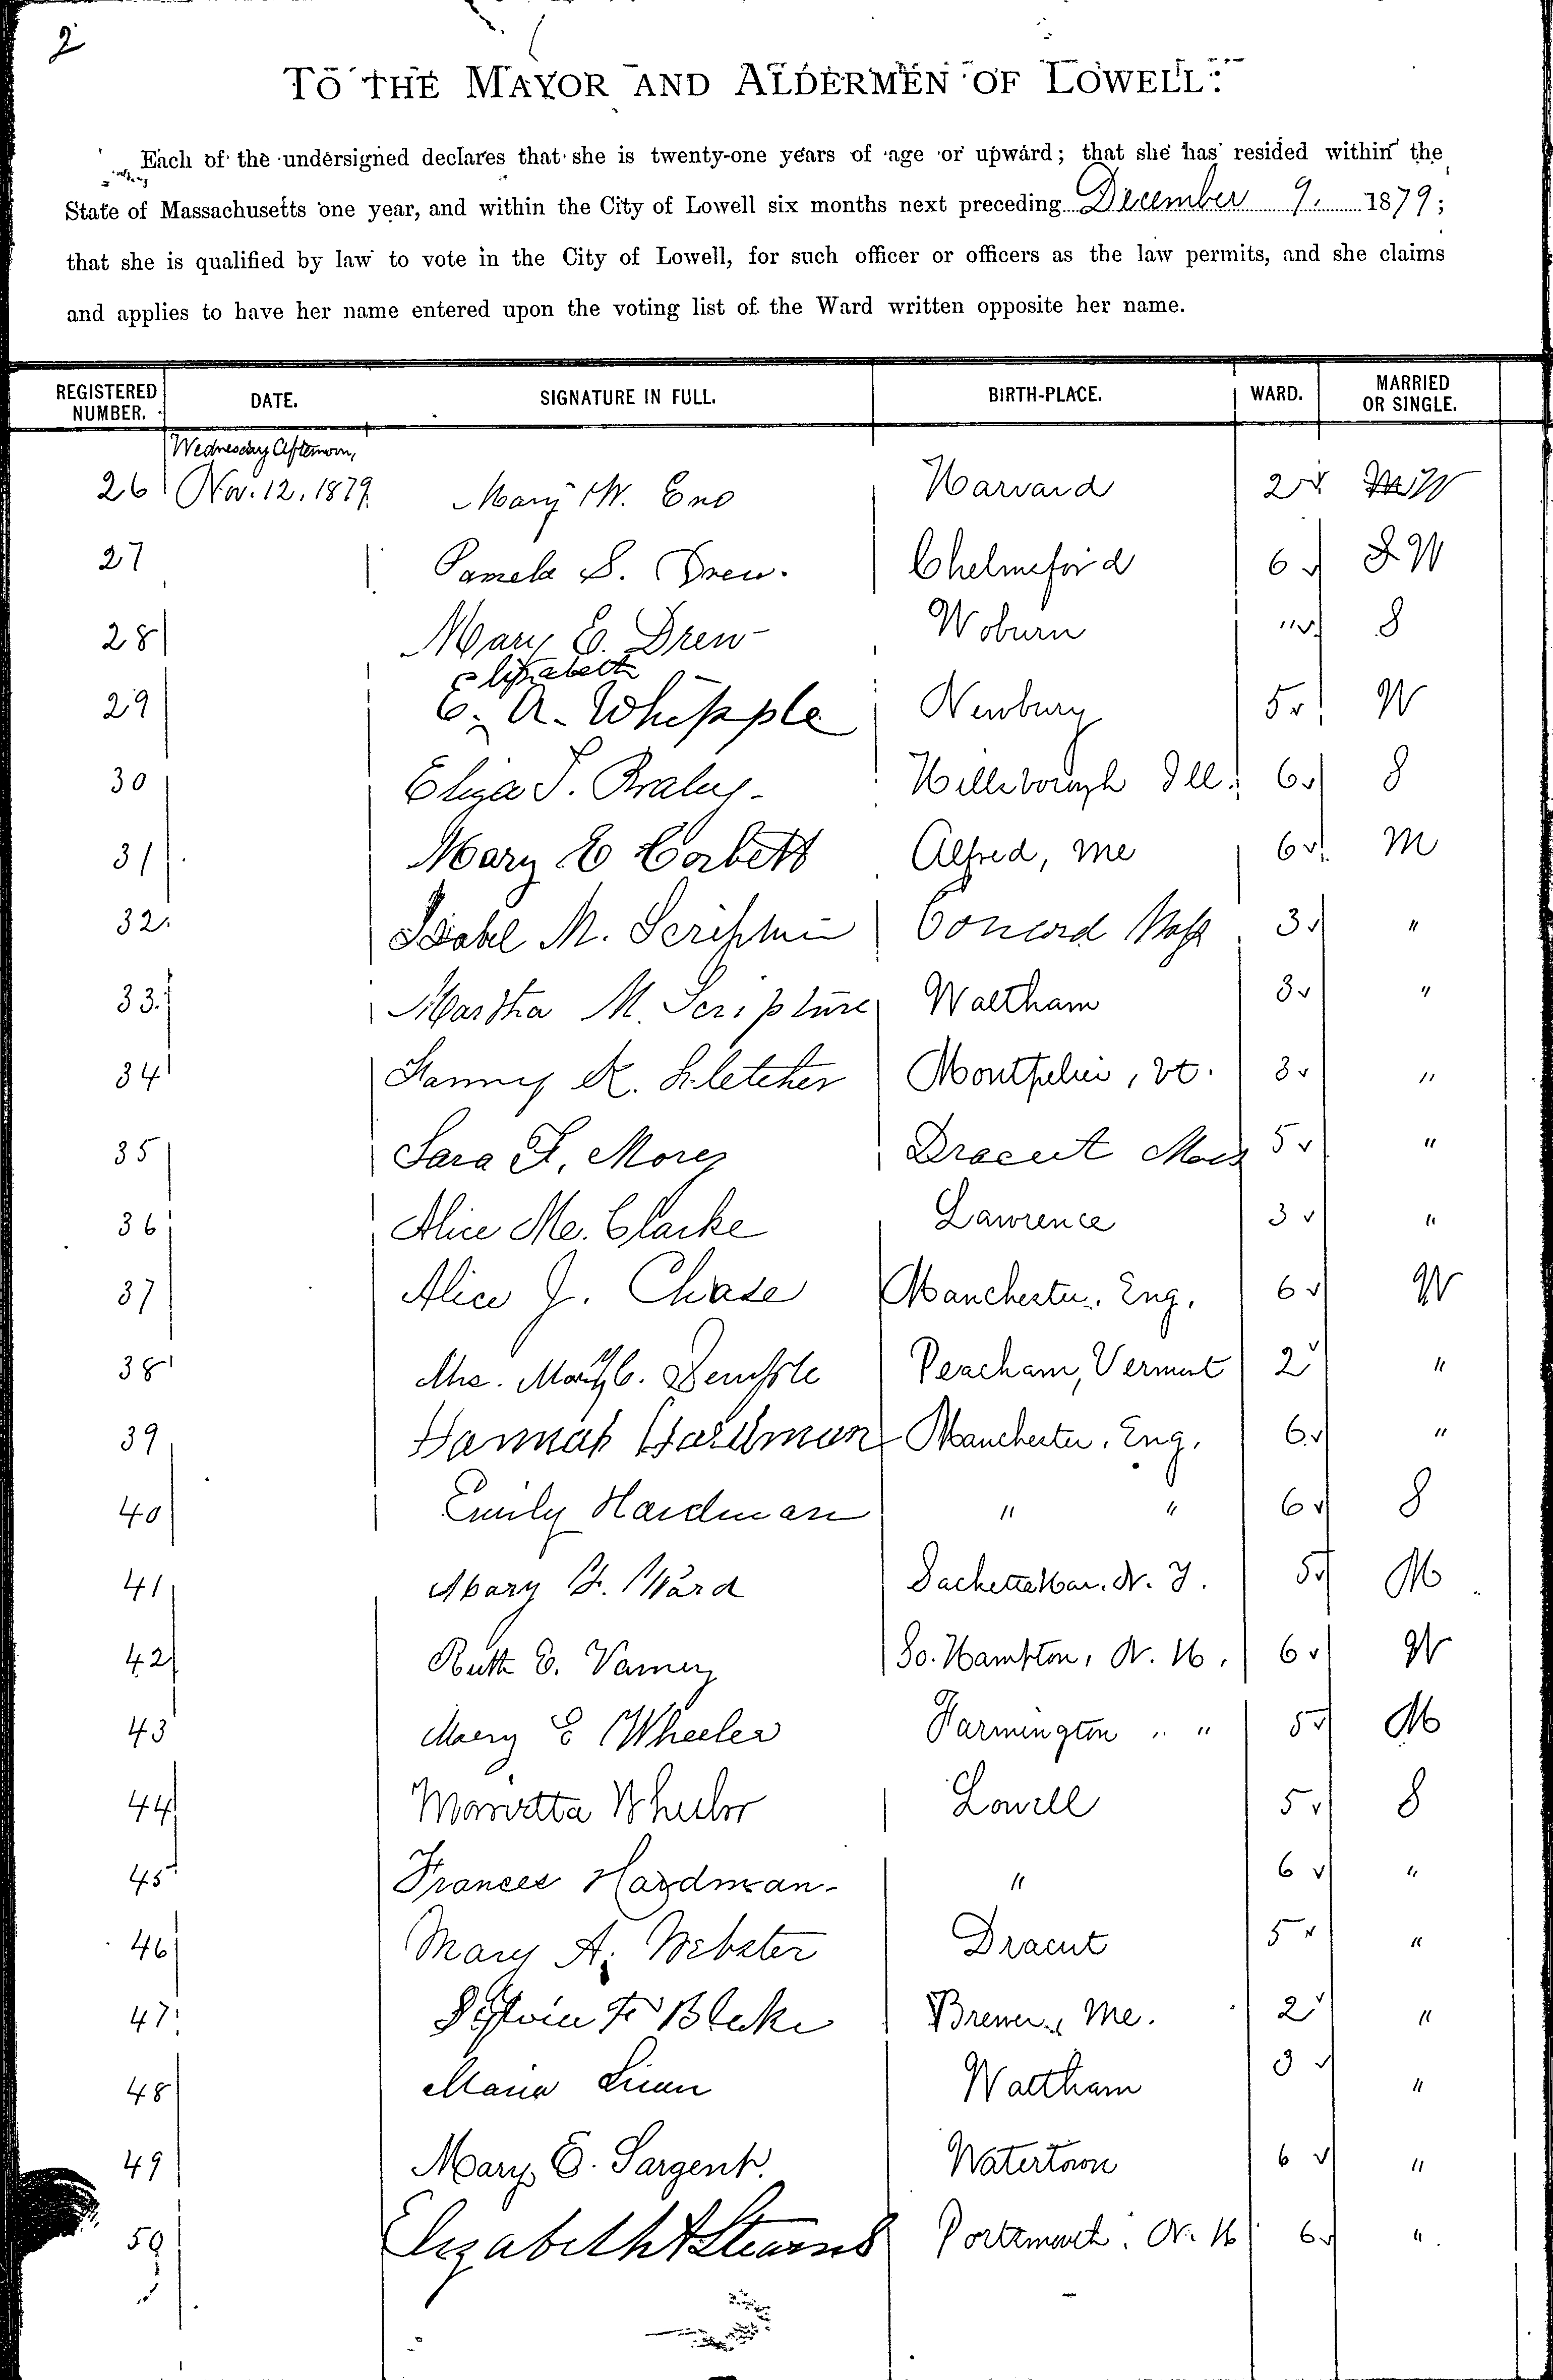 2
TO THE MAYOR AND ALDERMEN OF LOWELL:
Each of the undersigned declares that she is twenty-one years of age or upward; that she has resided within the
State of Massachusetts one year, and within the City of Lowell six months next preceding December 9, 1879;
that she is qualified by law to vote in the City of Lowell, for such officer or officers as the law permits, and she claims
and applies to have her name entered upon the voting list of the Ward written opposite her name.
REGISTERED NUMBER. DATE. SIGNATURE IN FULL. BIRTH-PLACE. WARD. MARRIED OR SINGLE.
Wednesday Afternoon,
26 Nov. 12, 1879. Mary W. Eno Harvard 2 W
27 Pamela S. Drew. Chelmsford 6 W
28 Mary E. Drew Woburn " S
Elizabeth
29 E. A. Whipple Newbury 5 W
30 Eliza T. Braley Hillsborough Ill. 6 S
31 Mary E Corbett Alfred, Me 6 M
32 Isabel M. Scripture Concord Mass 3 "
33 Martha M. Scripture Waltham 3 "
34 Fanny K. Fletcher Montpelier, Vt. 3 "
35 Sara F. Morey Dracut Mass 5 "
36 Alice Mc. Clarke Lawrence 3 "
37 Alice J. Chase Manchester, Eng. 6 W
38 Mrs. Mary C. Peacham, Vermont 2 "
39 Hannah Hardman Manchester, Eng. 6 "
40 Emily Hardman " " 6 S
41 Mary Ward 5 M
42 Ruth E. Varney So. Hampton, N. H. 6 W
43 Mary E Wheeler Farmington " " 5 M
44 Marietta Wheeler Lowell 5 S
45 Frances Hardman " 6 "
46 Mary A. Webster Dracut 5 "
47 Blake Brewer, Me. 2 "
48 Maria Waltham 3 "
49 Mary E. Sargent. Watertown 6 "
50 Elizabeth Stearns Portsmouth. N. H 6 "